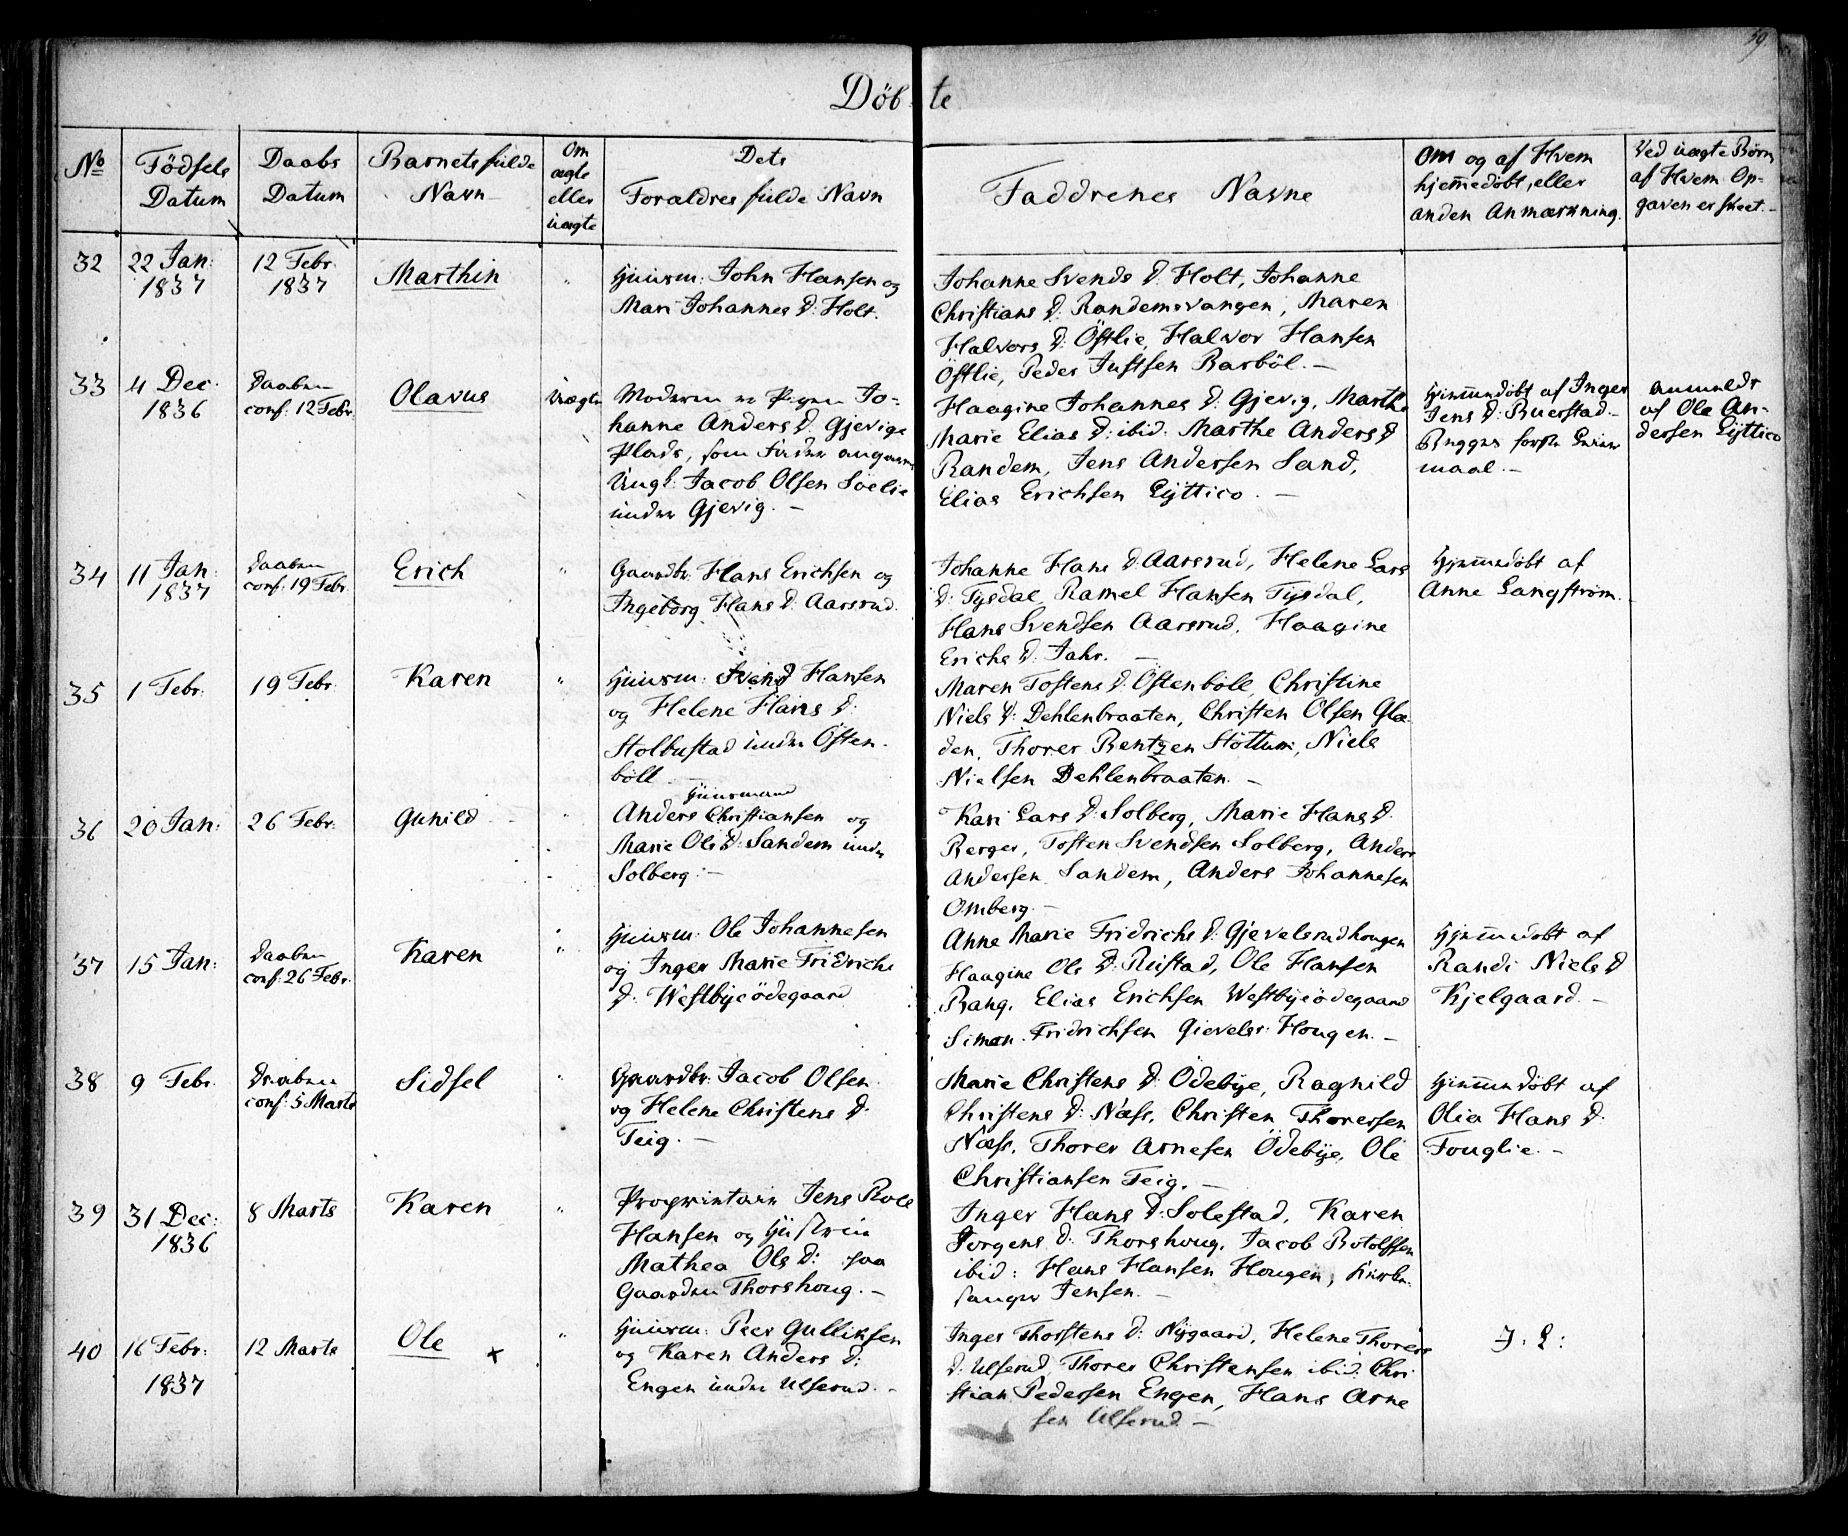 59
Döbte
No
Födsels
Datum
Daabs
Datum
Barnets fulde
Navn
Om
ægte
eller
uægte
Dets
Foraldres fulde Navn
Faddrenes Navne
Om og af Hvem
hjemmedöbt, eller
anden Anmærkning.
Ved uægte Börn
af Hvem Op-
gaven er skeet.
32
22 Jan:
1837
12 Febr.
1837
Marthin
"
Huusm: John Hansen og
Mari Johannes D: Holt.
Johanne Svends D: Holt, Johanne
Christians D: Randemsvangen, Maren
Halvors D: Östlie, Halvor Hansen
Östlie, Peder Justsen Barböl. —
33
4 Dec.
1836
Daaben
conf: 12 Febr.
Olavus
Uægte
Moderen er Pigen Jo-
hanne Anders D: Gjevigs
Plads, som Fader angaves
Ungk: Jacob Olsen Söelie
under Gjevig. —
Haagine Johannes D: Gjevig, Marthe
Marie Elias D: ibid. Marthe Anders D
Randem, Jens Andersen Sand,
Elias Erichsen Lyttico. —
Hjemmedöbt af Inger
Jens D: Buerstad.
Begges förste Leier
maal. —
anmeldt
af Ole An-
dersen Lyttico
34
11 Jan:
1837
Daaben
conf: 19 Febr.
Erich
"
Gaardbr: Hans Erichsen og
Ingeborg Hans D: Aarsrud.
Johanne Hans D: Aarsrud, Helene Lars
D: Tysdal, Ramel Hansen Tysdal,
Hans Svendsen Aarsrud, Haagine
Erichs D: Jahr. —
35
1 Febr.
19 Febr.
Karen
"
Huusm: Svend Hansen
og Helene Hans D:
Stolbustad under Östen-
böll —
Maren Tostens D: Östenböll, Christine
Niels D: Dehlenbraaten, Christen Olsen Gla-
den, Thorer Bentzen Stöttum, Niels
Nielsen Dehlenbraaten. —
36
20 Jan:
26 Febr.
Gunild
"
Huusmand
Anders Christiansen og
Marie Ols D: Sandem under
Solberg. —
Kari Lars D: Solberg, Marie Hans D.
Berger, Tosten Svendsen Solberg, Anders
Andersen Sandem, Anders Johannesen
Omberg. —
37
15 Jan:
Daaben
conf: 26 Febr.
Karen
"
Huusm: Ole Johannesen
og Inger Marie Fridrichs
D: Westbyeödegaard
Anne Marie Fridrichs D: Gjevelsrudhougen
Haagine Ols D: Rustad, Ole Hansen
Bang, Elias Erichsen Westbyeödegaard
Simon Fridrichsen Gievelsr: Hougen. —
Hjemmedöbt af
Randi Niels D
Kjelgaard. —
38
9 Febr.
Daaben
conf: 5 Marts
Sidsel
"
Gaardbr: Jacob Olsen
og Helene Christens D:
Teig. —
Marie Christens D: Ödebye, Ragnild
Christens D: Næss, Christen Thoressen
Næss, Thorer Arnesen Ödebye, Ole
Christiansen Teig. —
Hjemmedöbt af
Olia Hans D:
Fouglie. —
39
31 Dec:
1836
8 Marts
Karen
"
Proprietair Jens Boll
Hansen og Hustrue
Mathea Ols D: paa
Gaarden Thorshoug. —
Inger Hans D: Solestad, Karen
Jorgens D: Thorshoug, Jacob Botolfssen
ibid: Hans Hansen Hougen, Kirke-
sanger Jensen. —
40
16 Febr:
1837
12 Marts
Ole
x
"
Huusm: Peer Gulliksen
og Karen Anders D:
Engen under Ulserud. —
Inger Thorstens D: Nygaard, Helene Thorers
D: Ulserud Thorer Christensen ibid: Chri
stian Pedersen Engen, Hans Arne
sen Ulserud. —
I: L: